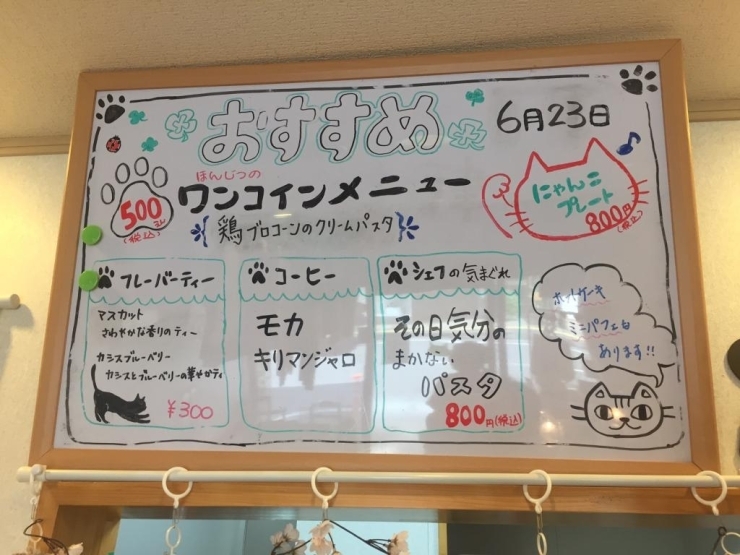 おすすめ
6月23日
ほんじつの
ワンコインメニュー
500
(税込)
鶏ブロコーンのクリームパスタ
にゃんこ
プレート
800円
(税込)
フレーバーティー
マスカット
さわやかな香りのティー
カシスブルーベリー
カシスとブルーベリーの華やかティ
¥300
コーヒー
モカ
キリマンジャロ
シェフの気まぐれ
その日気分の
まかない
パスタ
800円(税込)
ホットケーキ
ミニパフェも
あります!!